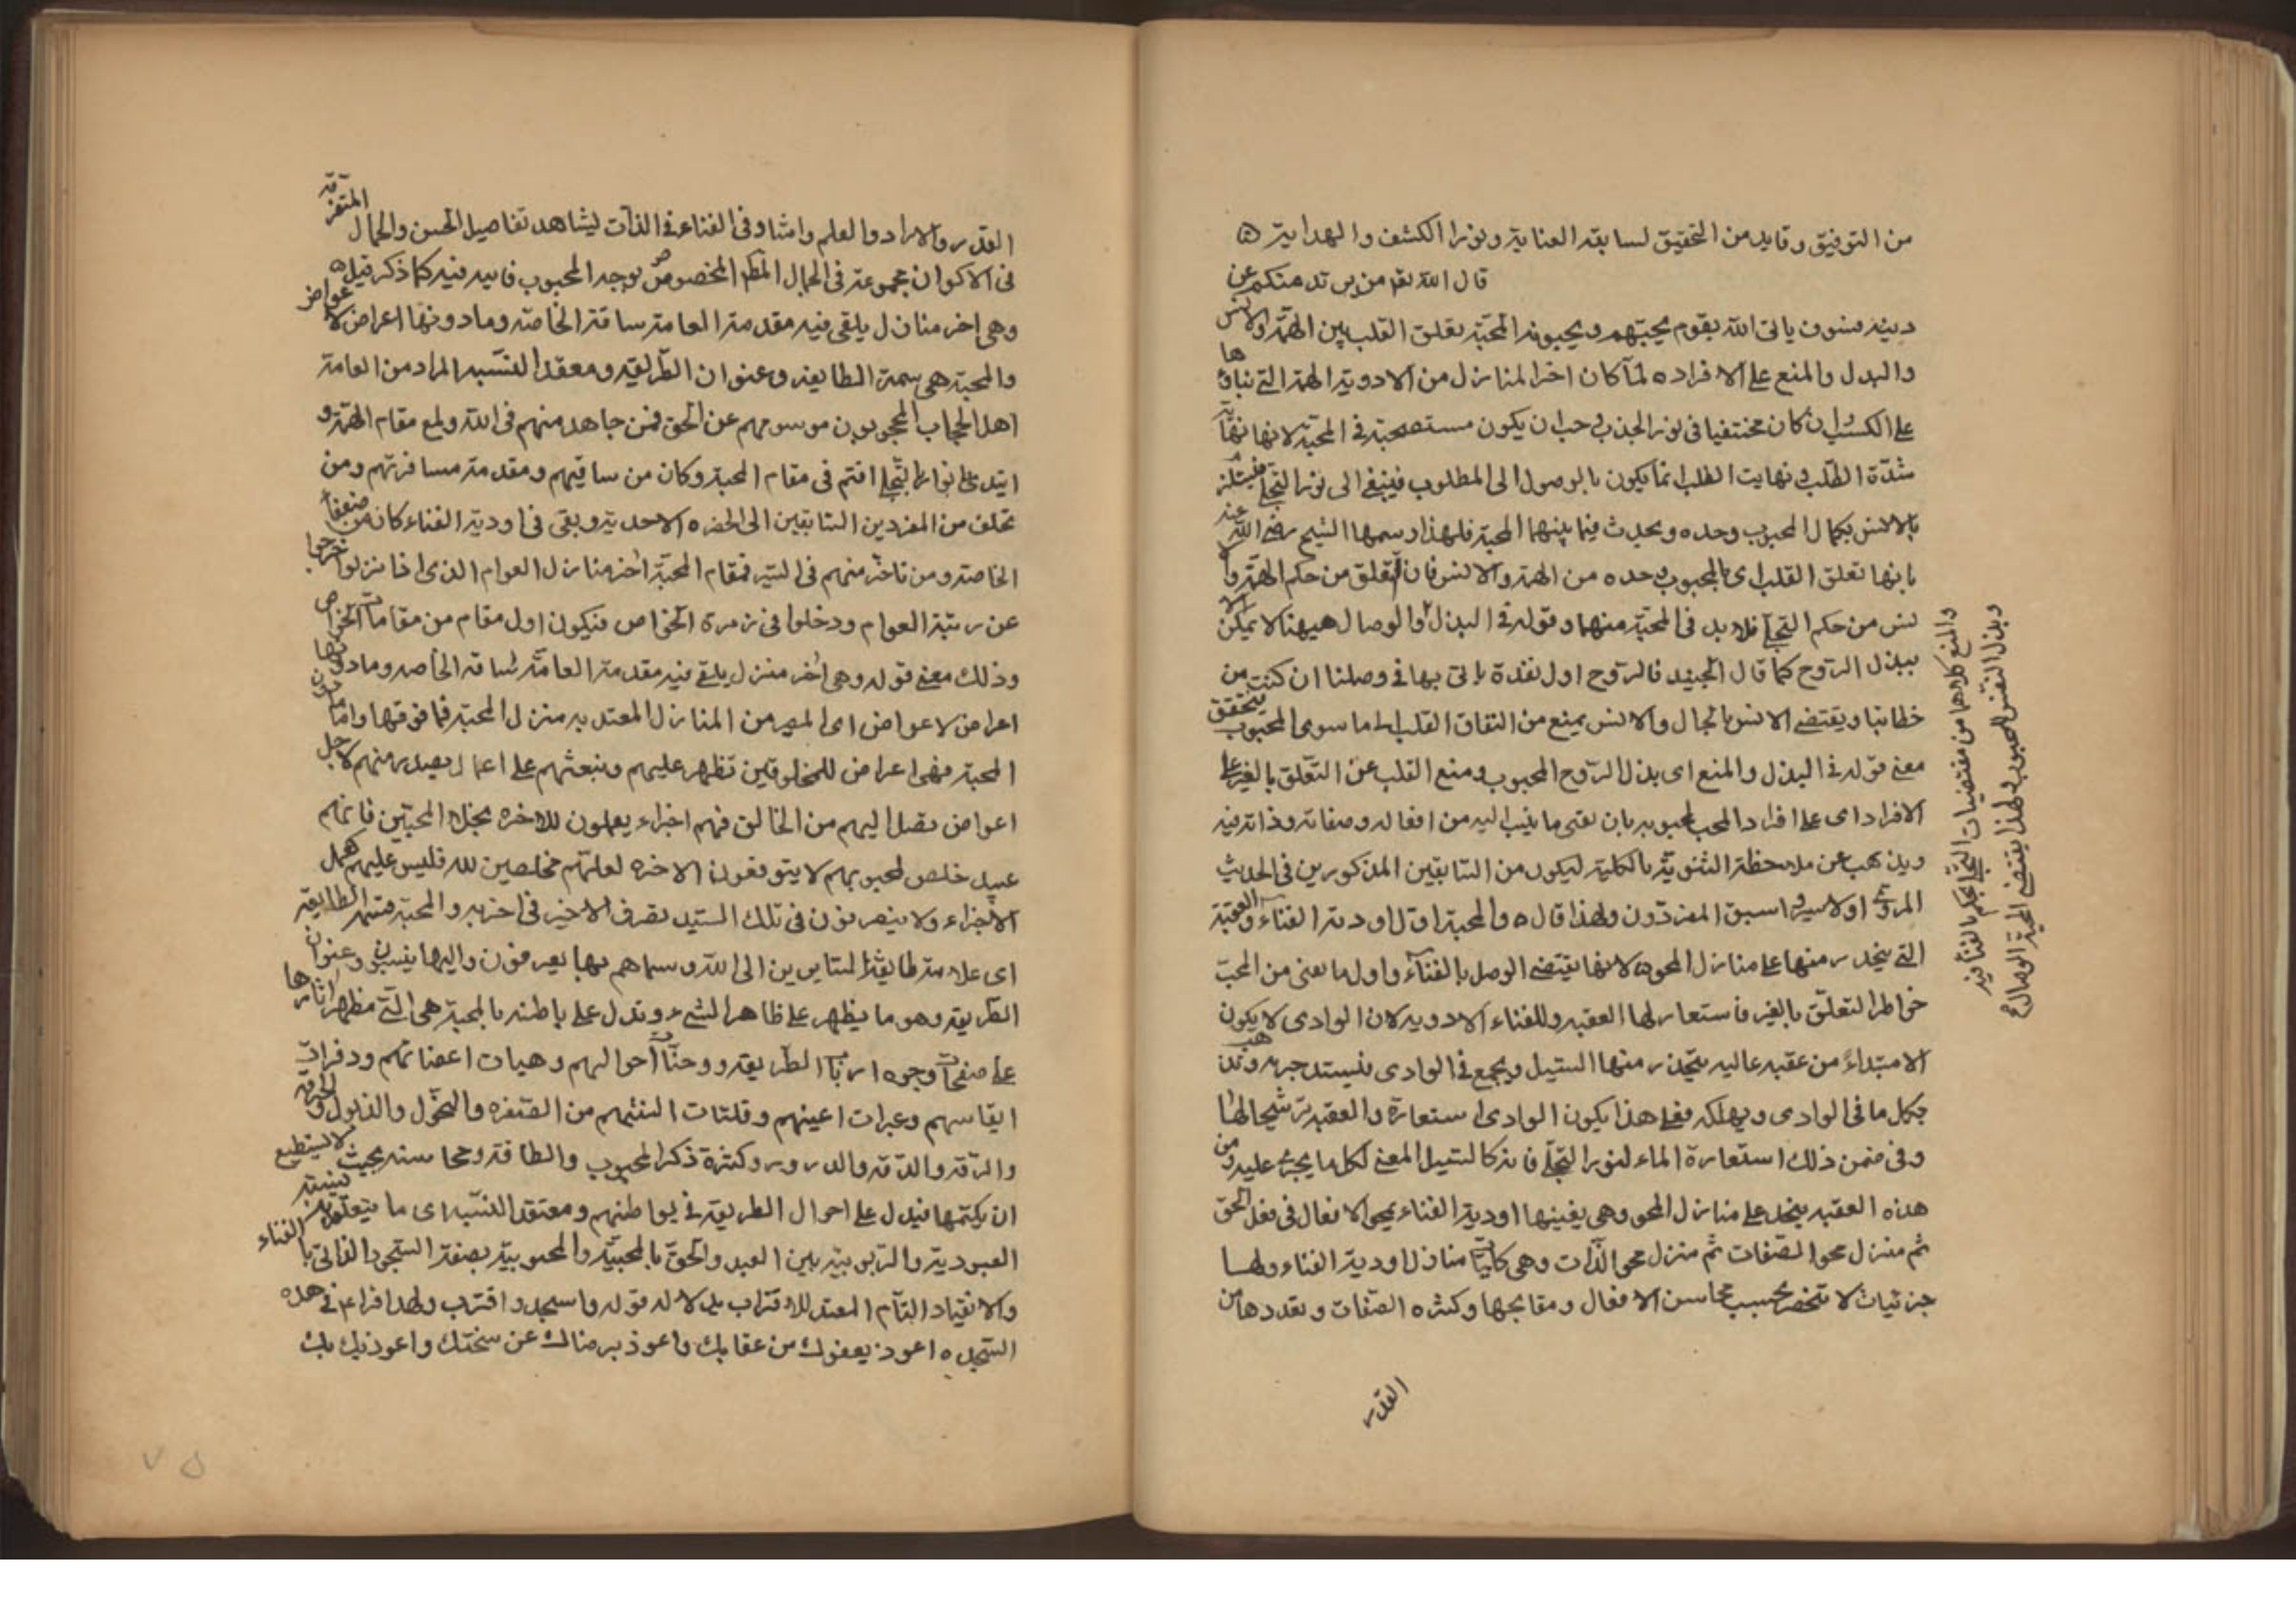 من التوفيق وتاييد من التحقيق لسابقة العناية ونور الكشف والهداية ه
قال الله تع من يرتد منكم عن
دينه فسوف ياتى الله بقوم يحبهم ويحبونه المحبة تعلق القلب بين الهمة والانس
والبدل والمنع على الافراد ه لما كان اخر المنازل من الادوية الهمة التى بناؤها
على الكسب وان كان مختفيا فى نور الجذب وجب ان يكون مستصحبة فى المحبة لانها نهاية
شدة الطلب ونهايت الطلب انما يكون بالوصول الى المطلوب فينبغى الى نور التجلى
بالانس بكمال المحبوب وحده ويحدث فيما بينهما المحبة فلهذا رسمها الشيخ رضى الله عنه
بانها تعلق القلب اى بالمحبوب وحده من الهمة والانس فان التعلق من حكم الهمة والا
نس من حكم التجلى فلا بد فى المحبة منهما وقوله فى البذل والوصال هيهنا لا يمكن الا
ببذل الروح كما قال الجنيد فالروح اول نقدة ياتى بها فى وصلنا ان كنت من
خطابنا ويقتضى الانس بالجمال والانس يمنع من التفات القلب الى ما سوى المحبوب فتحقق
معنى قوله فى البذل والمنع اى بذل الروح المحبوب ومنع القلب عن التعلق بالغير على
الافراد اى على افراد المحب لمحبوبه بان يفنى ما ينسب اليه من افعاله وصفاته وذاته فيه
ويذهب عن ملاحظة الثنوية بالكلية ليكون من السابقين المذكورين فى الحديث
المروى اولا سيروا سبق المفردون ولهذا قال ه والمحبة اول اودية الفناء والعقبة
التى ينحدر منها على منازل المحو ه لانها يقتضى الوصل بالفناء واول ما يفنى من المحب
خواطر التعلق بالغير فاستعار لها العقبة وللفناء الاودية لان الوادى لا يكون
الا مبتداء من عقبه عاليه يتحدر منها السيل ويجمع فى الوادى فيستد جريه ويذهب
بكل ما فى الوادى ويهلكه فعلى هذا يكون الوادى استعارة والعقبه ترشيحا لها
وفى ضمن ذلك استعارة الماء لنور التجلى فانه كالسيل المعنى لكل ما يجرى عليه ومن
هذه العقبه ينحدر على منازل المحو وهى يفنيها اودية الفناء بمحو الافعال فى فعل الحق
ثم منزل محو الصفات ثم منزل محو الذات وهى كليات منازل اودية الفناء ولها
جزئيات لا تنحصر بحسب محاسن الافعال ومقابحها وكثره الصفات وتعددها من
القدر
والمنع كلاهما من مقتضيات التجلى بحكم بالفنا فيه
وبذل النفس المحبوب ولهذا يقتضى المحبة الوصال صح
القدرة والارادة والعلم وامثاله فى الفناء فى الذات ليشاهد تفاصيل الحسن والجمال المتفرقة
فى الاكوان مجموعة فى الجمال المطلق المخصوص بوجه المحبوب فانيه فيه كما ذكر قيل ه
وهى اخر منازل يلقى فيه مقدمة العامة ساقة الخاصة وما دونها اعراض لاعواض
والمحبة هى سمة الطايفة وعنوان الطريقة ومعقد النسبه المراد من العامة
اهل الحجاب المحجوبون موسومهم عن الحق فمن جاهد منهم فى الله وبلغ مقام الهمة و
ايتدى بانوار التجلى افتم فى مقام المحبة وكان من ساقيهم ومقدمة مسافرتهم ومن
تخلف من المفردين السابقين الى الحضره الاحدية وبقى فى اودية الفناء كان من ضعفاء
الخاصة ومن تاخر منهم فى السير فمقام المحبة اخر منازل العوام الذى اذا نزلوا خرجوا
عن رتبة العوام ودخلوا فى زمرة الخواص فيكون اول مقام من مقامات الخواص
وذلك معنى قوله وهى اخر منزل يلقى فيه مقدمة العامة ساقة الخاصه وما دونها
اعراض لاعواض اى المير من المنازل المعتد به منزل المحبة فما فوقها واما ما دون
المحبة فهى اعراض للمخلوقين تظهر عليهم وتبعثهم على اعمال يصدر منهم لاجل
اعواض تصل اليهم من الخالق فهم اجراء يعملون للاخره بخلاف المحبين فانهم
عبيد خلص لمحبوبهم لا يتوقعون الاخره لعلهم مخلصين لله فليس عليهم عمل
الاجراء ولا ينصرفون فى تلك السيد تصرف الاخير فى اخربه والمحبة سمة الطايفة
اى علامة طايفة السايرين الى الله وسماهم بها يعرفون واليها ينسبون وعنوان
الطريقة وهو ما يظهر على ظاهر الشىء وتدل على باطنه بالمحبة هى التى مظهر اثارها
على صفحات وجوه ارباب الطريقة ووجنات احوالهم وهيات اعضائهم ودفرات
انفاسهم وعبرات اعينهم وفلتات السنتهم من الصفره والنحول والذبول والحرقة
والرقة والدقه والدروروكثرة ذكر المحبوب والطافه ومحاسنه بحيث لا يستطيع
ان يكتمها فيدل على احوال الطريقة فى بواطنهم ومعتقد النسبه اى ما يتعلق به نسبة
العبودية والربوبية بين العبد والحق بالمحبية والمحبوبية بصفة السجود الفانى بالفناء
والانقياد التام المعتد للاقتراب بدلالة قوله واسجد واقترب ولهذا قراء فى هذه
السجده اعوذ بعفوك من عقابك واعوذ برضاك عن سخطك واعوذ بك بك